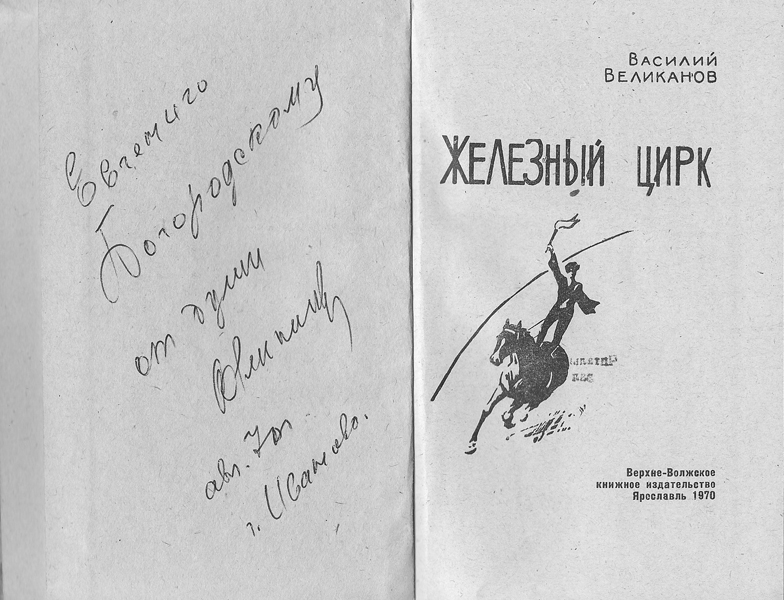 Евгению
Богородскому
от души
авг. 70г.
г. Иваново.
ВАСИЛИЙ
ВЕЛИКАНОВ
ЖЕЛЕЗНЫЙ ЦИРК
Верхне-Волжское
книжное издательство
Ярославль 1970